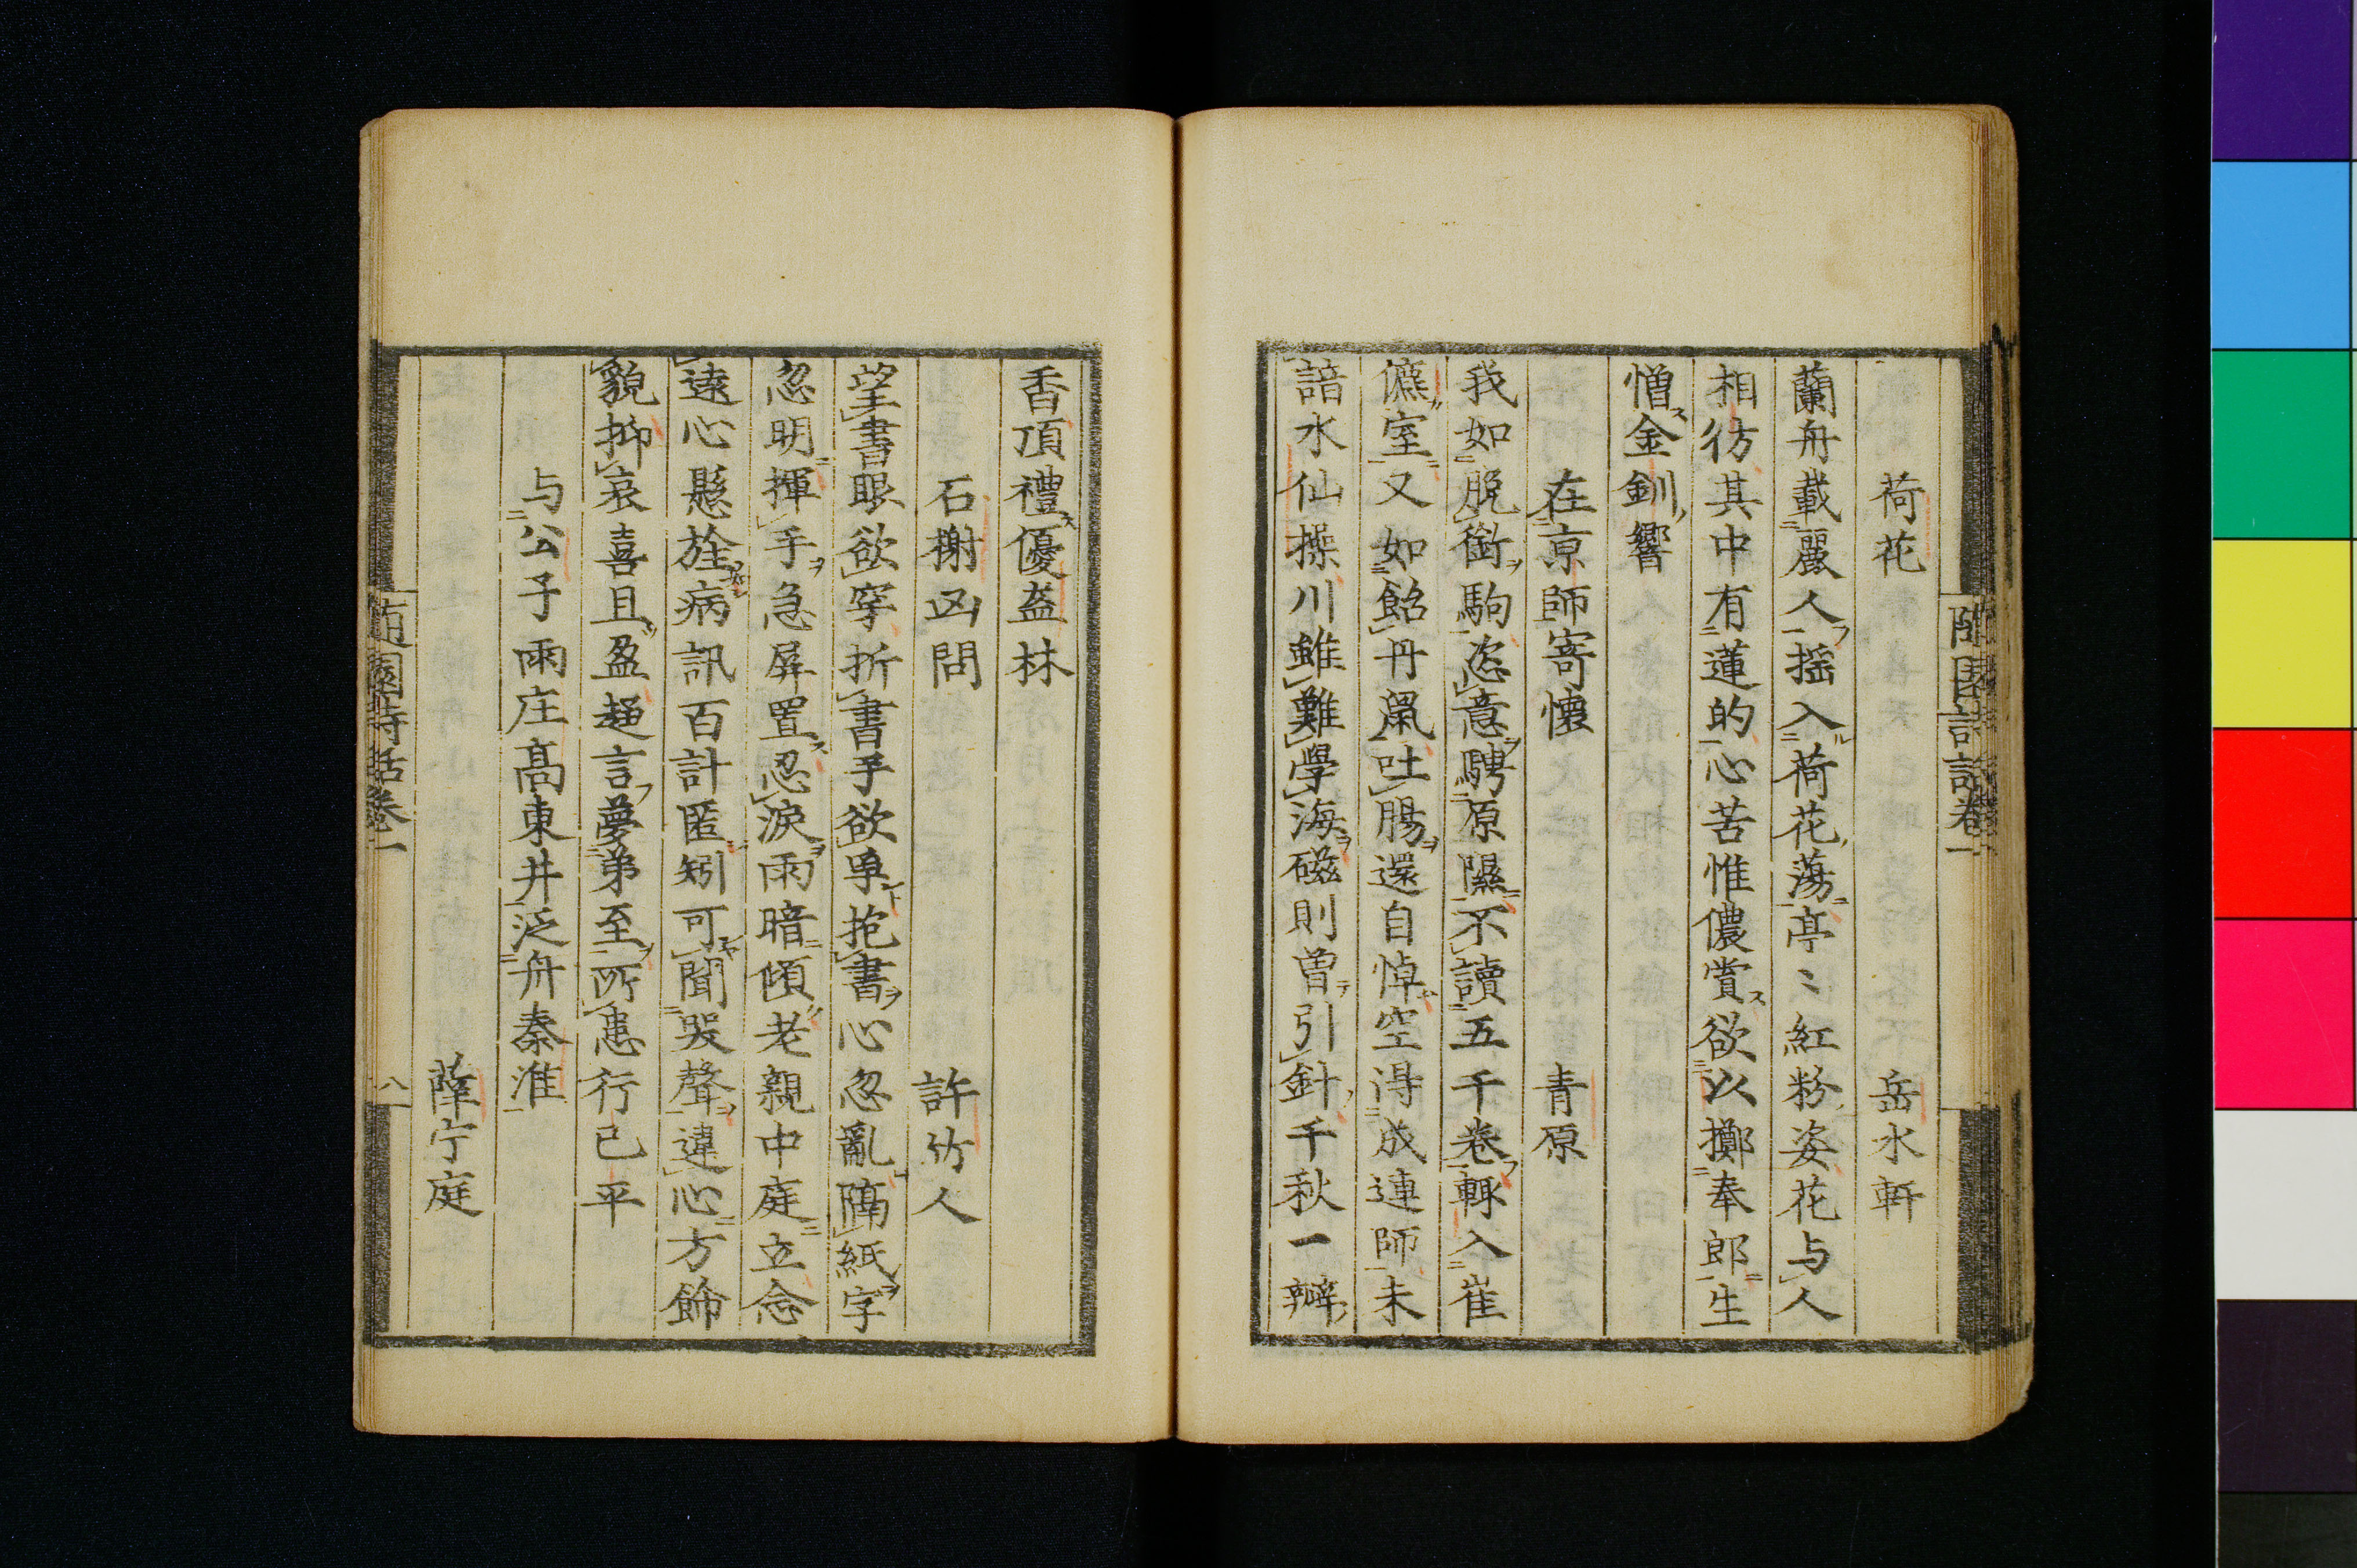 荷花 岳水軒
蘭舟載麗人揺入荷花蕩亭〻紅粉姿花与人
相彷其中有蓮的心苦惟儂賞欲以擲奉郎生
憎金釧響
在京師寄懷 青原
我如脱銜駒恣意騁原隰不讀五千卷輒入崔
儦室又如餡丹鼠吐腸還自悼空得成連師未
諳水仙操川雖難學海磁則曽引針千秋一瓣
香頂禮優盋林
石榭凶問 許竹人
望書眼欲穿折書手欲爭抱書心忽亂隔紙字
忽明揮手急屏置忍淚雨暗傾老親中庭立念
遠心懸旌病訊百計匿矧可聞哭聲違心方飾
貌抑哀喜且盈趨言夢弟至所患行已平
与公子雨庄髙東井泛舟秦淮
薛宁庭
随園詩話卷一 八